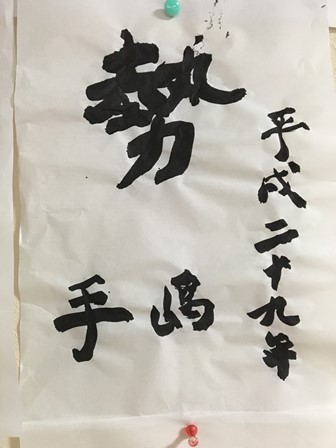 平成二十九年
勢
手嶋